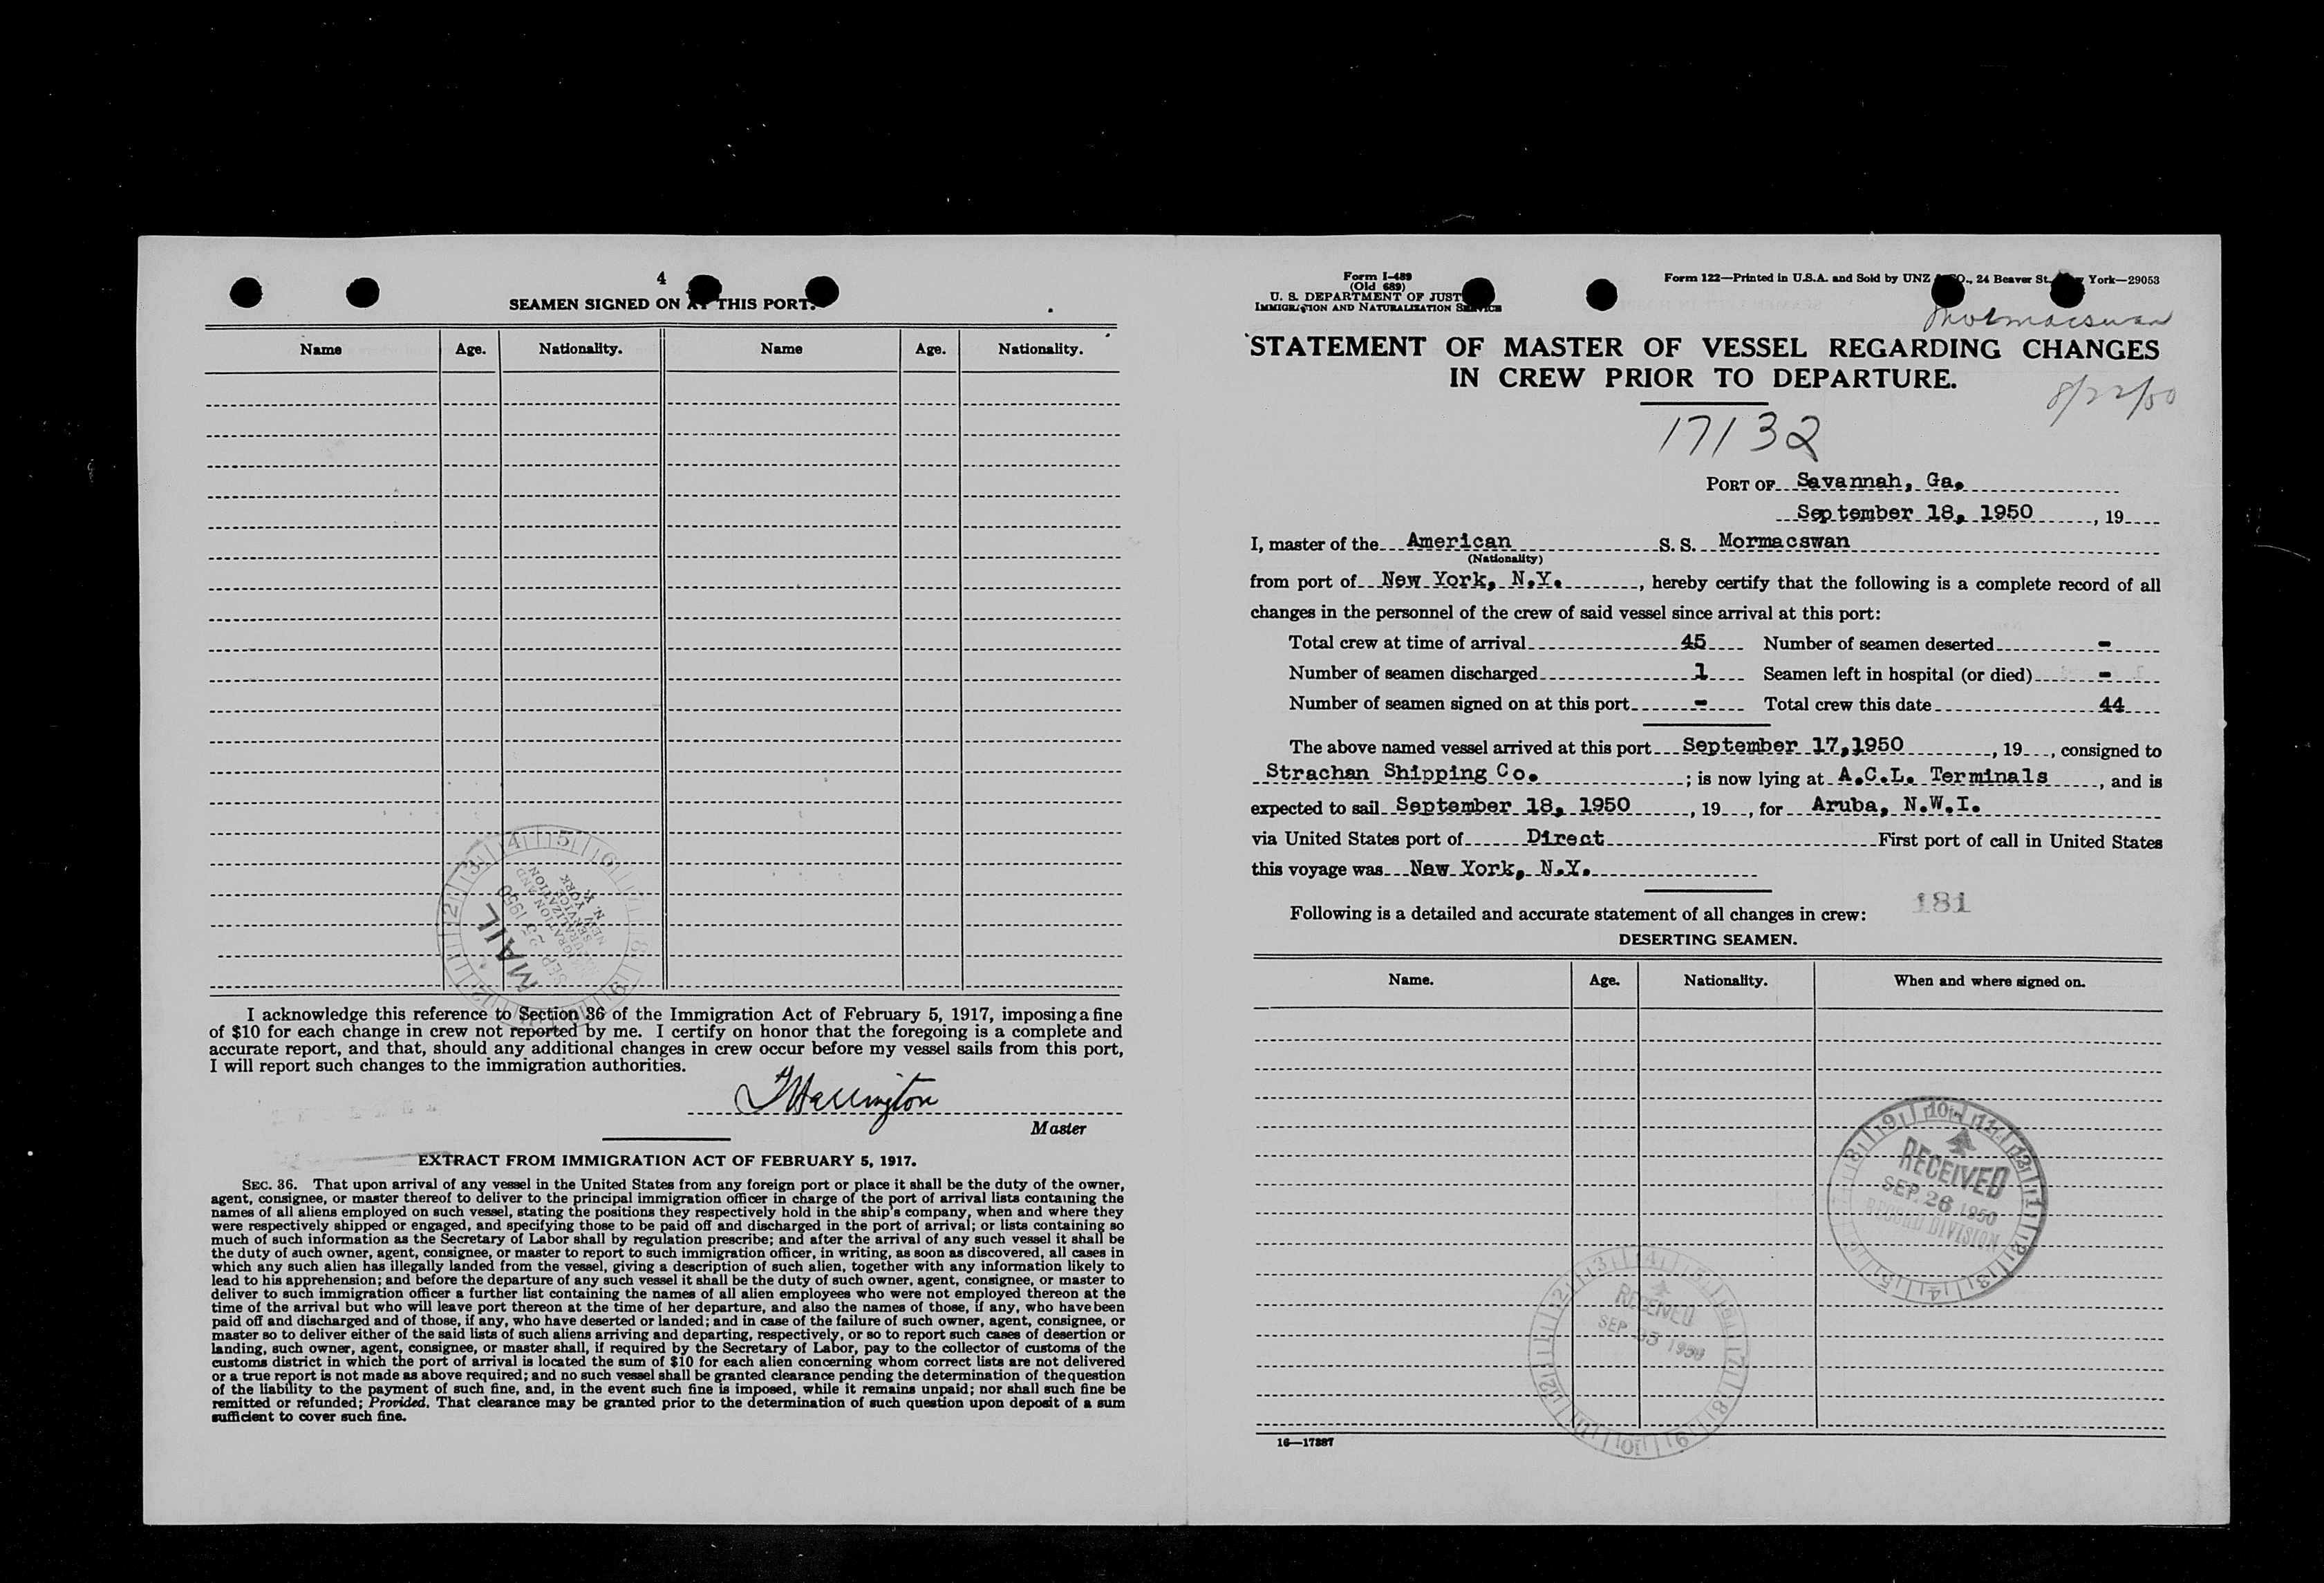 4
SEAMEN SIGNED ON AT THIS PORT.
Name Age. Nationality. Name Age. Nationality.
MAIL
SEP 25 1950
NEW YORK
N. Y.
I acknowledge this reference to Section 36 of the Immigration Act of February 5, 1917, imposing a fine
of $10 for each change in crew not reported by me. I certify on honor that the foregoing is a complete and
accurate report, and that, should any additional changes in crew occur before my vessel sails from this port,
I will report such changes to the immigration authorities.
Master
EXTRACT FROM IMMIGRATION ACT OF FEBRUARY 5, 1917.
SEC. 36. That upon arrival of any vessel in the United States from any foreign port or place it shall be the duty of the owner,
agent, consignee, or master thereof to deliver to the principal immigration officer in charge of the port of arrival lists containing the
names of all aliens employed on such vessel, stating the positions they respectively hold in the ship's company, when and where they
were respectively shipped or engaged, and specifying those to be paid off and discharged in the port of arrival; or lists containing so
much of such information as the Secretary of Labor shall by regulation prescribe; and after the arrival of any such vessel it shall be
the duty of such owner, agent, consignee, or master to report to such immigration officer, in writing, as soon as discovered, all cases in
which any such alien has illegally landed from the vessel, giving a description of such alien, together with any information likely to
lead to his apprehension; and before the departure of any such vessel it shall be the duty of such owner, agent, consignee, or master to
deliver to such immigration officer a further list containing the names of all alien employees who were not employed thereon at the
time of the arrival but who will leave port thereon at the time of her departure, and also the names of those, if any, who have been
paid off and discharged and of those, if any, who have deserted or landed; and in case of the failure of such owner, agent, consignee, or
master so to deliver either of the said lists of such aliens arriving and departing, respectively, or so to report such cases of desertion or
landing, such owner, agent, consignee, or master shall, if required by the Secretary of Labor, pay to the collector of customs of the
customs district in which the port of arrival is located the sum of $10 for each alien concerning whom correct lists are not delivered
or a true report is not made as above required; and no such vessel shall be granted clearance pending the determination of the question
of the liability to the payment of such fine, and, in the event such fine is imposed, while it remains unpaid; nor shall such fine be
remitted or refunded; Provided, That clearance may be granted prior to the determination of such question upon deposit of a sum
sufficient to cover such fine.
Form I-489
(Old 689)
U. S. DEPARTMENT OF JUST
IMMIGRATION AND NATURALIZATION SERVICE
Form 122—Printed in U.S.A. and Sold by UNZ & CO., 24 Beaver St., New York—29053
Mormacswan
STATEMENT OF MASTER OF VESSEL REGARDING CHANGES
IN CREW PRIOR TO DEPARTURE.
8/22/50
17132
PORT OF Savannah, Ga.
September 18, 1950, 19
I, master of the American S. S. Mormacswan
(Nationality)
from port of New York, N.Y., hereby certify that the following is a complete record of all
changes in the personnel of the crew of said vessel since arrival at this port:
Total crew at time of arrival 45 Number of seamen deserted -
Number of seamen discharged 1 Seamen left in hospital (or died) -
Number of seamen signed on at this port - Total crew this date 44
The above named vessel arrived at this port September 17, 1950, 19, consigned to
Strachan Shipping Co.; is now lying at A.C.L. Terminals, and is
expected to sail September 18, 1950, 19, for Aruba, N.W.I.
via United States port of Direct First port of call in United States
this voyage was New York, N.Y.
181
Following is a detailed and accurate statement of all changes in crew:
DESERTING SEAMEN.
Name. Age. Nationality. When and where signed on.
RECEIVED
SEP 26 1950
RECORD DIVISION
RECEIVED
SEP 1950
16—17887